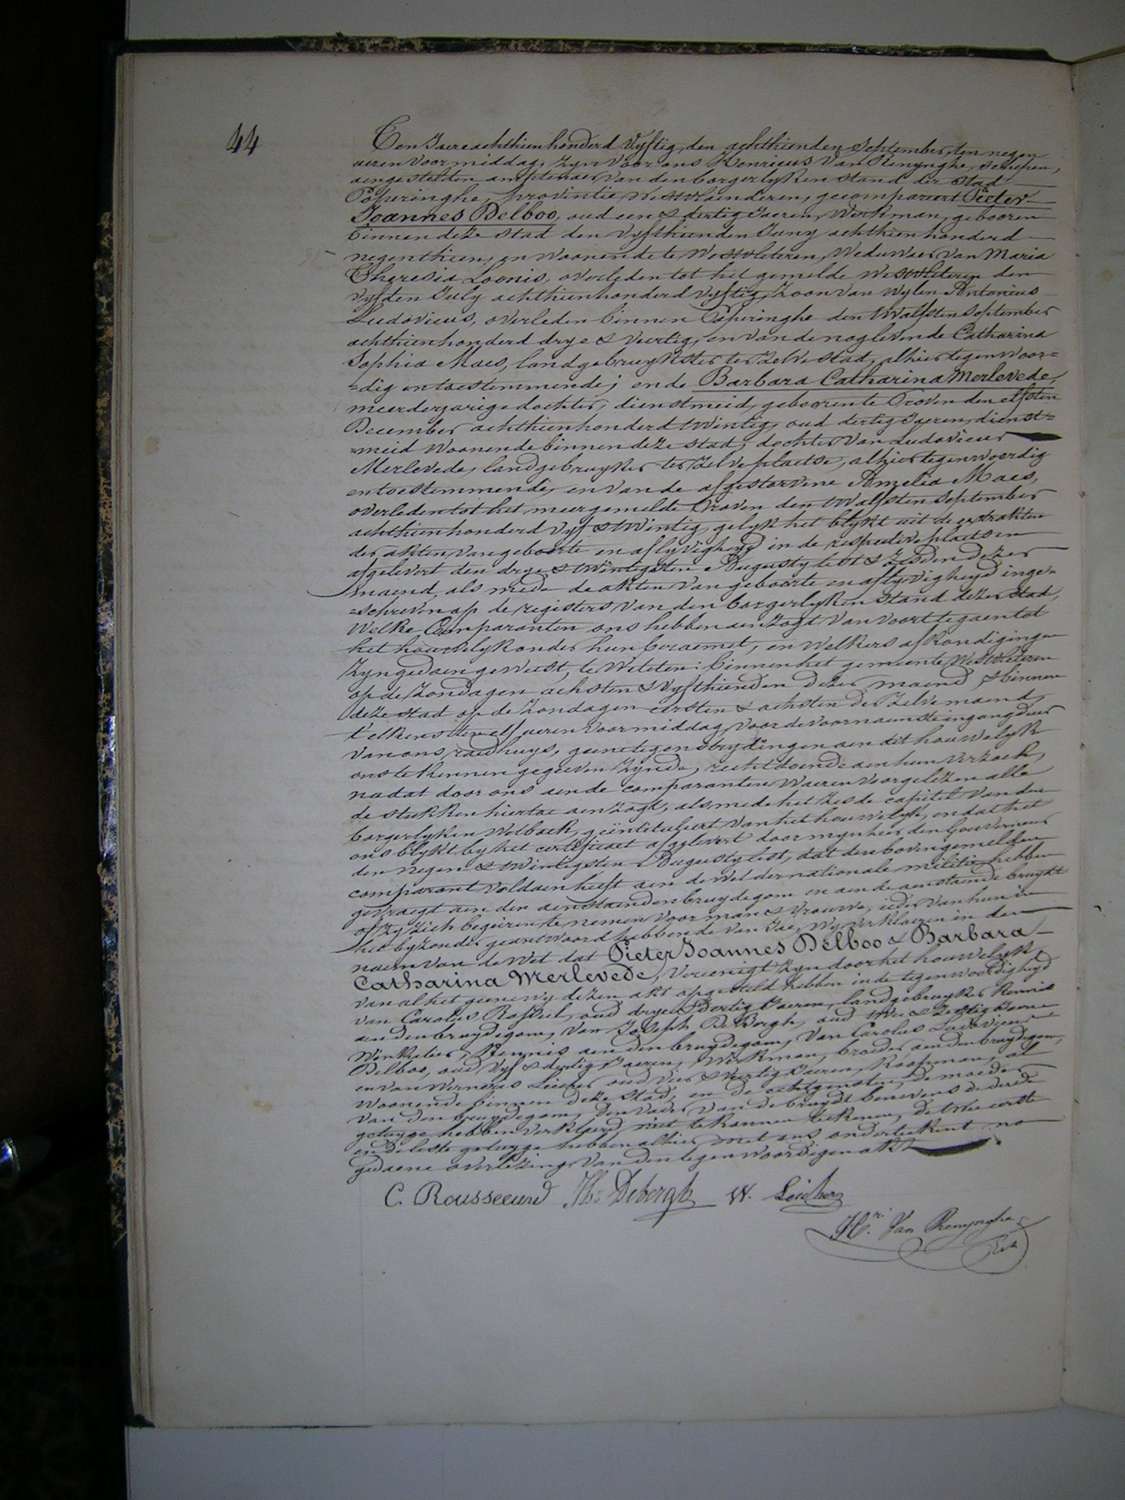 44
Ten Jaere achthien honderd vyftig, den achthienden September, ten negen
ueren voormiddag, zyn voor ons Henricus Van Renynghe, schepen,
aengestelden amptenaer van den borgerlyken stand der stad
Poperinghe, provintie Westvlaenderen, gecompareert Pieter
Joannes Delboo, oud een & dertig Jaeren, Werkman, gebooren
binnen deze stad den vyfthienden Juny achthien honderd
negenthien, en Woonende te Westvleteren, Weduwaer van Maria
Theresia Loonis, overleden tot het gemelde Westvleteren den
vyfden July achthien honderd vyftig, Zoon van wylen Antonius
Ludovicus, overleden binnen Poperinghe den twalfsten September
achthien honderd drye & veertig, en van de nogleven de Catharina
Sophia Maes, landgebruykster ter zelve stad, alhier tegenwoor=
=dig en toestemmende; en de Barbara Catharina Merlevede,
meerderjarige dochter, dienstmeid, geboren te Proven den elfsten
December achthien honderd twintig, oud dertig Jaeren, dienst=
=meid Woonende binnen deze stad, dochter van Ludovicus
Merlevede, landgebruyker ter zelve plaetse, alhier tegenwoordig
en toestemmende, en van de afgestorvene Amelia Maes,
overleden tot het meergemelde Proven den twalfsten September
achthien honderd vyf & twintig, gelyk het blykt uit de extrakten
der akten van geboorte en aflyvigheyd in de respective plaetsen
afgelevert den drye & twintigsten Augusty lest & zesden dezer
maend, als mede de akten van geboorte en aflyvigheyd inge=
=schreven op de registers van den borgerlyken stand dezer stad,
Welke Comparanten ons hebben aenzogt van voort te gaen tot
het houwelyk onder hun beraemt, en welkers afkondigingen
zyn gedaen geweest, te weten: binnen het gemeente Westvleteren
op de Zondagen achsten & vyfthienden dezer maend, & binnen
deze stad op de Zondagen eersten & achsten der zelve maend,
t'elkens ten elf ueren voormiddag, voor de voornaemste ingangdeur
van ons raedhuys, geene tegenstrydingen aen dit houwelyk
ons te kennen gegeven zynde, recht doende aen hun verzoek,
nadat door ons aen de comparanten Waeren voorgelezen alle
de stukken hiertoe aenzogt, als mede het zesde capitel van den
borgerlyken Wetboek, geïntituleert van het houwelyk, en dat het
ons blykt by het certificaet afgelevert door mynheer den Gouverneur
den negen & twintigsten Augusty lest, dat den bovengemelden
comparant voldaen heeft aen de Wet der nationale militie, hebben
gevraegt aen den aenstaenden bruydegom en aen de aenstaende bruydt
of zy zich begeiren te nemen voor man & vrouwe, ieder van hun in
het byzonder geantwoord hebbende van Jae, wy verklaeren in den
naem van de Wet dat Pieter Joannes Delboo & Barbara
Catharina Merlevede, vereenigt zyn door het houwelyk,
van al het geene wy dezen akt opgesteld hebben in de tegenwoordigheyd
van Carolus Rousseeuw, oud drye & dertig Jaeren, landgebruyker, kennis
aen den bruydegom, van Joseph De Bergh, oud twee & zestig Jaeren
Winkelier, kennis aen den bruydegom, van Carolus Ludovicus
Delboo, oud vyf & dertig Jaeren, Werkman, broeder aen den bruydegom,
en van Wernerus Liecher, oud vier & veertig Jaeren, Koopman, al
Woonende binnen deze stad, en de echtgenoten, de moeder
van den bruydegom, den vader van de bruydt benevens de derde
getuyge hebben verklaerd niet te kunnen teekenen, de twee eerste
en de leste getuyge hebben alhier met ons onderteekent na
gedaene overlezing van den tegenwoordigen akt
C. Rousseeuw Jh: Debergh W. Leichers
Hri. Van Renynghe